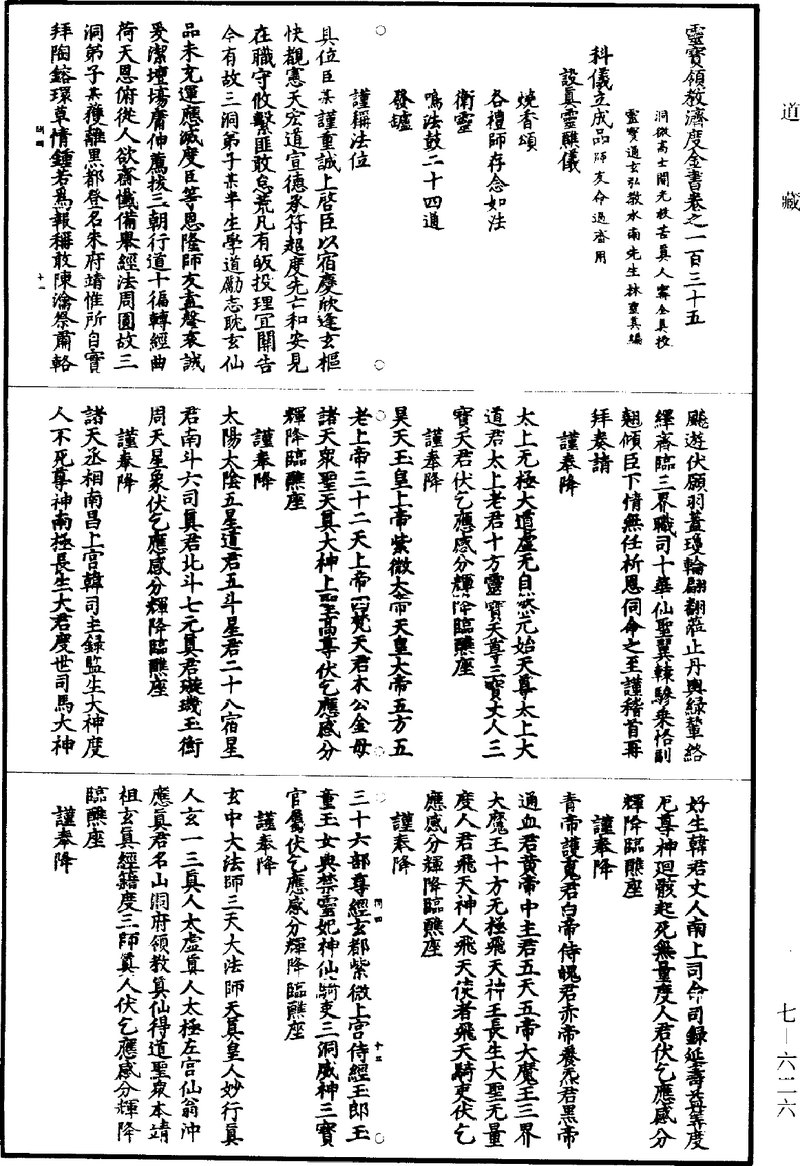 道藏
七—六二六
靈寶領教濟度金書卷之一百三十五
洞微高士開光救苦真人甯全真授
靈寶通玄弘教水南先生林靈真編
科儀立成品師友命過齋用
設真靈醮儀
燒香頌
各禮師存念如法
衛靈
鳴法鼓二十四通
發爐
謹稱法位
具位臣某謹重誠上啓臣以宿慶欣逢玄樞
快覩憲天宏道宣德承符超度先亡和安見
在職守攸繫匪敢怠荒凡有皈投理宜關告
今有故三洞弟子某半生學道勵志耽玄仙
品未充運應滅度臣等恩隆師友盡罄哀誠
爰潔壇場膺伸薦拔三朝行道十徧轉經曲
荷天恩俯從人欲齋懺備舉經法周圓故三
洞弟子某獲離黑都登名朱府靖惟所自實
拜陶鎔環草情鍾若爲報稱敢陳瀹祭肅輅
飈遊伏願羽蓋瓊輪翩翻蒞止丹輿綠輦絡
繹齋臨三界職司十華仙聖翼轅驂乘恪副
翹傾臣下情無任祈恩伺命之至謹稽首再
拜奏請
謹奉降
太上无極大道虛无自然元始天尊太上大
道君太上老君十方靈寶天尊三寶丈人三
寶天君伏乞應感分輝降臨醮座
謹奉降
昊天玉皇上帝紫微大帝天皇大帝五方五
老上帝三十二天上帝四梵天君木公金母
諸天衆聖天真大神上聖高尊伏乞應感分
輝降臨醮座
謹奉降
太陽太陰五星道君五斗星君二十八宿星
君南斗六司真君北斗七元真君璇璣玉衡
周天星象伏乞應感分輝降臨醮座
謹奉降
諸天丞相南昌上宮韓司主錄監生大神度
人不死尊神南極長生大君度世司馬大神
好生韓君丈人南上司命司錄延壽益筭度
厄尊神迴骸起死無量度人君伏乞應感分
輝降臨醮座
謹奉降
青帝護魂君白帝侍魄君赤帝養炁君黑帝
通血君黄帝中主君五天五帝大魔王三界
大魔王十方无極飛天神王長生大聖无量
度人君飛天神人飛天使者飛天騎吏伏乞
應感分輝降臨醮座
謹奉降
三十六部尊經玄都紫微上宮侍經玉郎玉
童玉女典禁靈妃神仙騎吏三洞威神三寶
官屬伏乞應感分輝降臨醮座
謹奉降
玄中大法師三天大法師天真皇人妙行真
人玄一三真人太虛真人太極左宮仙翁沖
應真君名山洞府領教真仙得道聖衆本靖
祖玄真經籍度三師真人伏乞應感分輝降
臨醮座
謹奉降